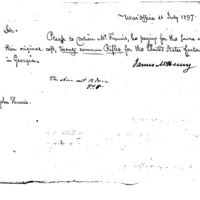 War Office 11 July 1797.
Sir,
Please to deliver Mr. Harris, he paying for the same
their original cost, twenty common Rifles for the United States factory
in Georgia.
James McHenry
The above cost 12 Dols
John Harris.